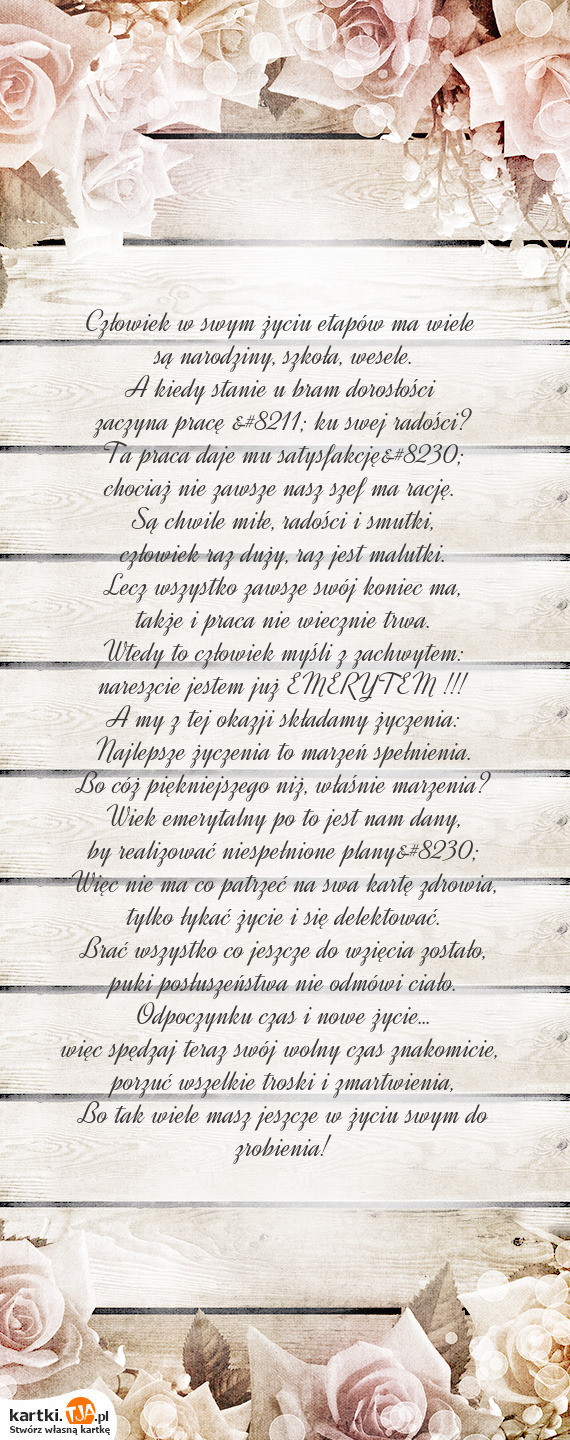 Człowiek w swym życiu etapów ma wiele
są narodziny, szkoła, wesele.
A kiedy stanie u bram dorosłości
zaczyna pracę &#8211; ku swej radości?
Ta praca daje mu satysfakcję&#8230;
chociaż nie zawsze nasz szef ma rację.
Są chwile miłe, radości i smutki,
człowiek raz duży, raz jest malutki.
Lecz wszystko zawsze swój koniec ma,
także i praca nie wiecznie trwa.
Wtedy to człowiek myśli z zachwytem:
nareszcie jestem już EMERYTEM !!!
A my z tej okazji składamy życzenia:
Najlepsze życzenia to marzeń spełnienia.
Bo cóż piękniejszego niż, właśnie marzenia?
Wiek emerytalny po to jest nam dany,
by realizować niespełnione plany&#8230;
Więc nie ma co patrzeć na swa kartę zdrowia,
tylko łykać życie i się delektować.
Brać wszystko co jeszcze do wzięcia zostało,
puki posłuszeństwa nie odmówi ciało.
Odpoczynku czas i nowe życie...
więc spędzaj teraz swój wolny czas znakomicie,
porzuć wszelkie troski i zmartwienia,
Bo tak wiele masz jeszcze w życiu swym do
zrobienia!
kartki.TJA.pl
Stwórz własną kartkę